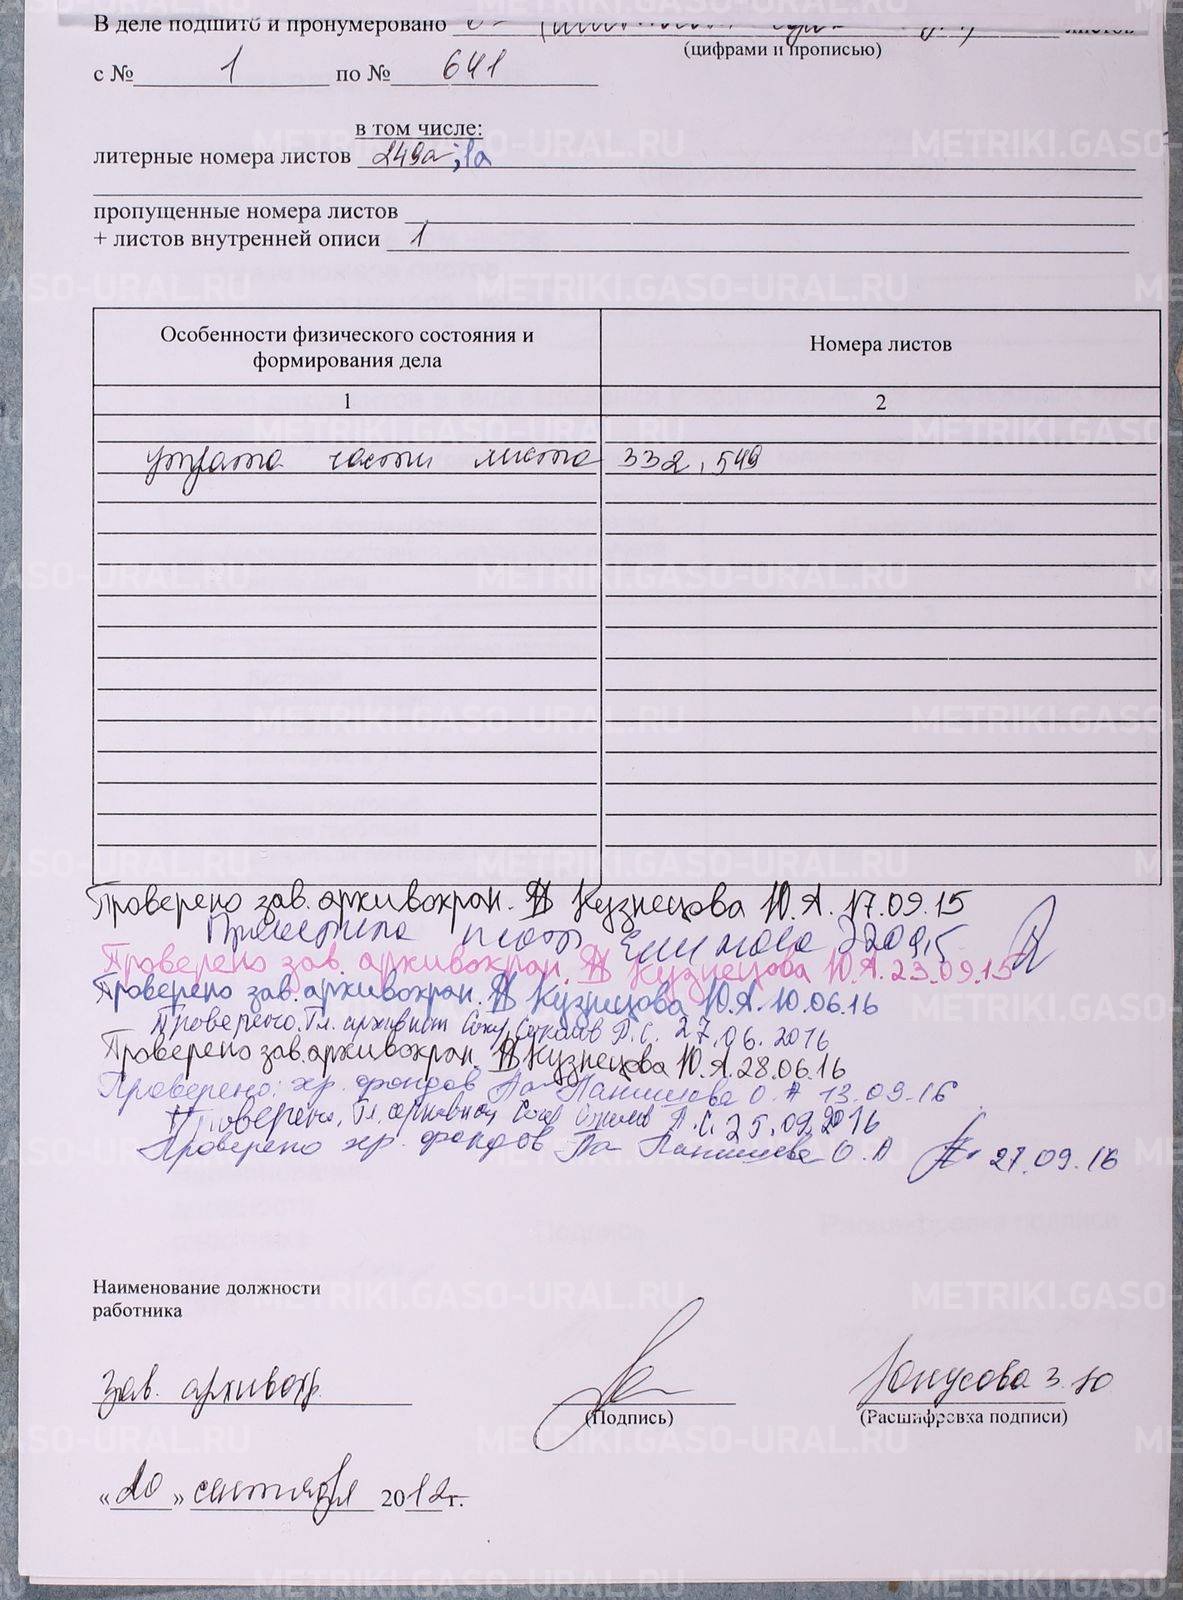 В деле подшито и пронумеровано листов
(цифрами и прописью)
с № 1 по № 641
в том числе:
литерные номера листов 249а; 1а
пропущенные номера листов
+ листов внутренней описи 1
Особенности физического состояния и формирования дела Номера листов
1 2
утрата части листа 332, 549
Проверено зав. архивохран. Кузнецова Ю.А. 17.09.15
Проверено зав. архивохран. Кузнецова Ю.А. 23.09.15
Проверено зав. архивохран. Кузнецова Ю.А. 10.06.16
Проверено. Гл. архивист Соколов 27.06.2016
Проверено зав. архивохран. Кузнецова Ю.А. 28.06.16
Проверено: хр. фондов О.А 13.09.16
Проверено, Гл. архивист 25.09.2016
Проверено хр. фондов О.А 27.09.16
Наименование должности
работника
зав. архивохр. Юнусова З.Ю
(Подпись) (Расшифровка подписи)
«20» сентября 2012 г.
METRIKI.GASO-URAL.RU